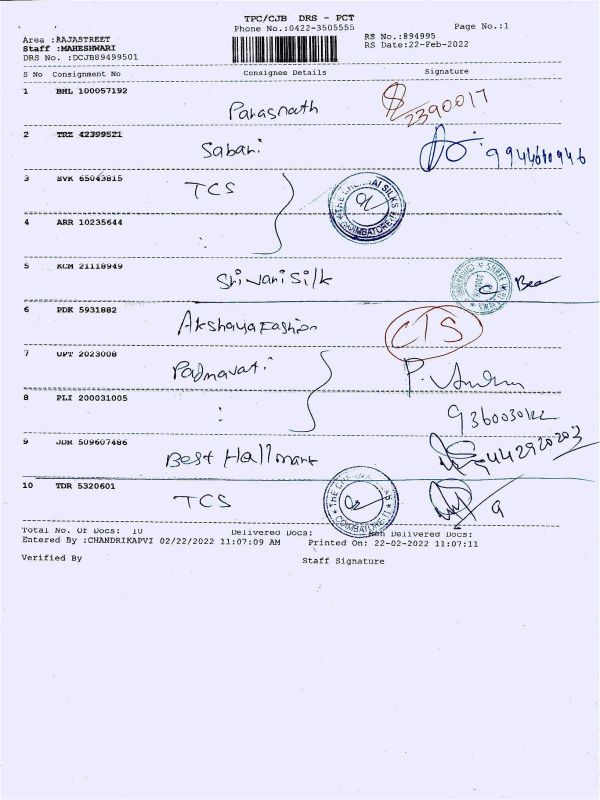 TPC/CJB DRS - PCT
Phone No.:0422-3505555
Page No.:1
Area :RAJASTREET
Staff :MAHESHWARI
DRS No. :DCJB89499501
RS No.:894995
RS Date:22-Feb-2022
S No Consignment No Consignee Details Signature
1 BHL 100057192
Parasnath
2390017
2 TRZ 42399521
Sabari
9944610946
3 SVK 65043815
TCS
THE CHENNAI SILKS
COIMBATORE
4 ARR 10235644
:
5 KCM 21118949
Srivari Silk
6 PDK 5931882
Akshaya Fashion
CTS
7 UPT 2023008
Padmavati
P.
8 PLI 200031005
:
9 JDR 509607486
Best Hallmark
10 TDR 5320601
TCS
COIMBATORE
Total No. Of Docs: 10 Delivered Docs: Non Delivered Docs:
Entered By :CHANDRIKAPVI 02/22/2022 11:07:09 AM Printed On: 22-02-2022 11:07:11
Verified By Staff Signature